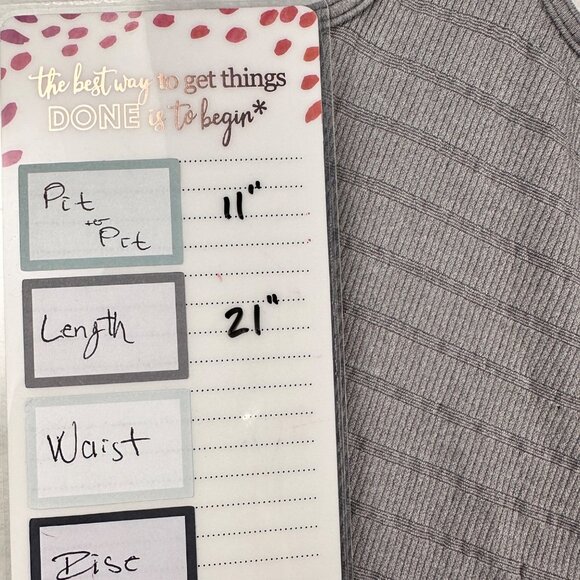 the best way to get things
DONE is to begin*
Pit
to
Pit
11"
Length
21"
Waist
Rise